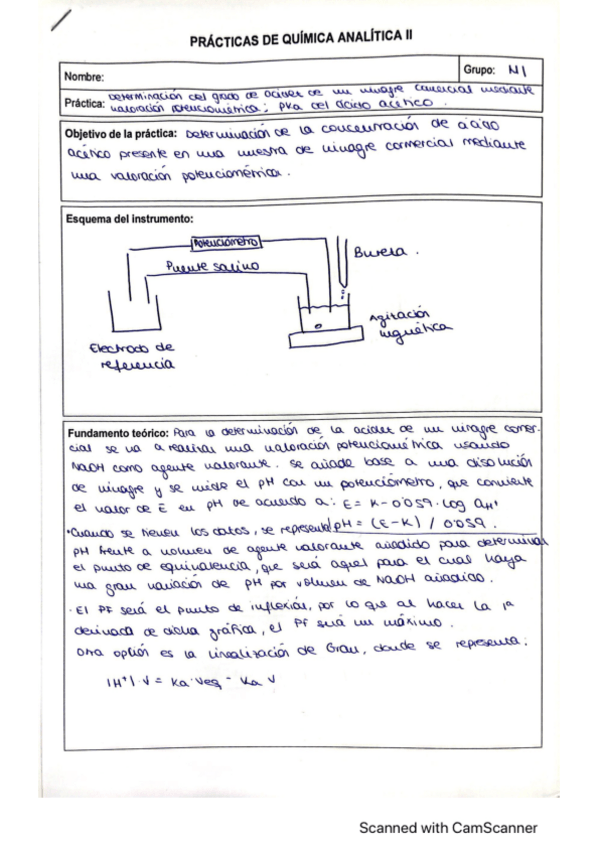 PRÁCTICAS DE QUÍMICA ANALÍTICA II
Nombre:
Grupo: N1
Práctica: Determinación del grado de acidez de un vinagre comercial mediante
valoración potenciométrica: pKa del ácido acético.
Objetivo de la práctica: Determinación de la concentración de ácido
acético presente en una muestra de vinagre comercial mediante
una valoración potenciométrica.
Esquema del instrumento:
Potenciómetro
Puente salino
Bureta.
Electrodo de
referencia
Agitación
magnética
Fundamento teórico: Para la determinación de la acidez de un vinagre comer-
cial se va a realizar una valoración potenciométrica usando
NaOH como agente valorante. Se añade base a una disolución
de vinagre y se mide el pH con un potenciómetro, que convierte
el valor de E en pH de acuerdo a: E = K - 0'059 · log aH+
· Cuando se tienen los datos, se representa pH = (E-K) / 0'059.
pH frente a volumen de agente valorante añadido para determinar
el punto de equivalencia, que será aquel para el cual haya
una gran variación de pH por volumen de NaOH añadido.
· El PF será el punto de inflexión, por lo que al hacer la 1ª
derivada de dicha gráfica, el PF será un máximo.
Otra opción es la linealización de Gran, donde se representa:
|H+| · V = Ka · Veq - Ka V
Scanned with CamScanner